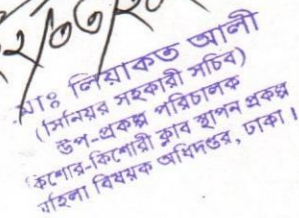 মোঃ লিয়াকত আলী
(সিনিয়র সহকারী সচিব)
উপ-প্রকল্প পরিচালক
কিশোর কিশোরী ক্লাব স্থাপন প্রকল্প
মহিলা বিষয়ক অধিদপ্তর, ঢাকা।